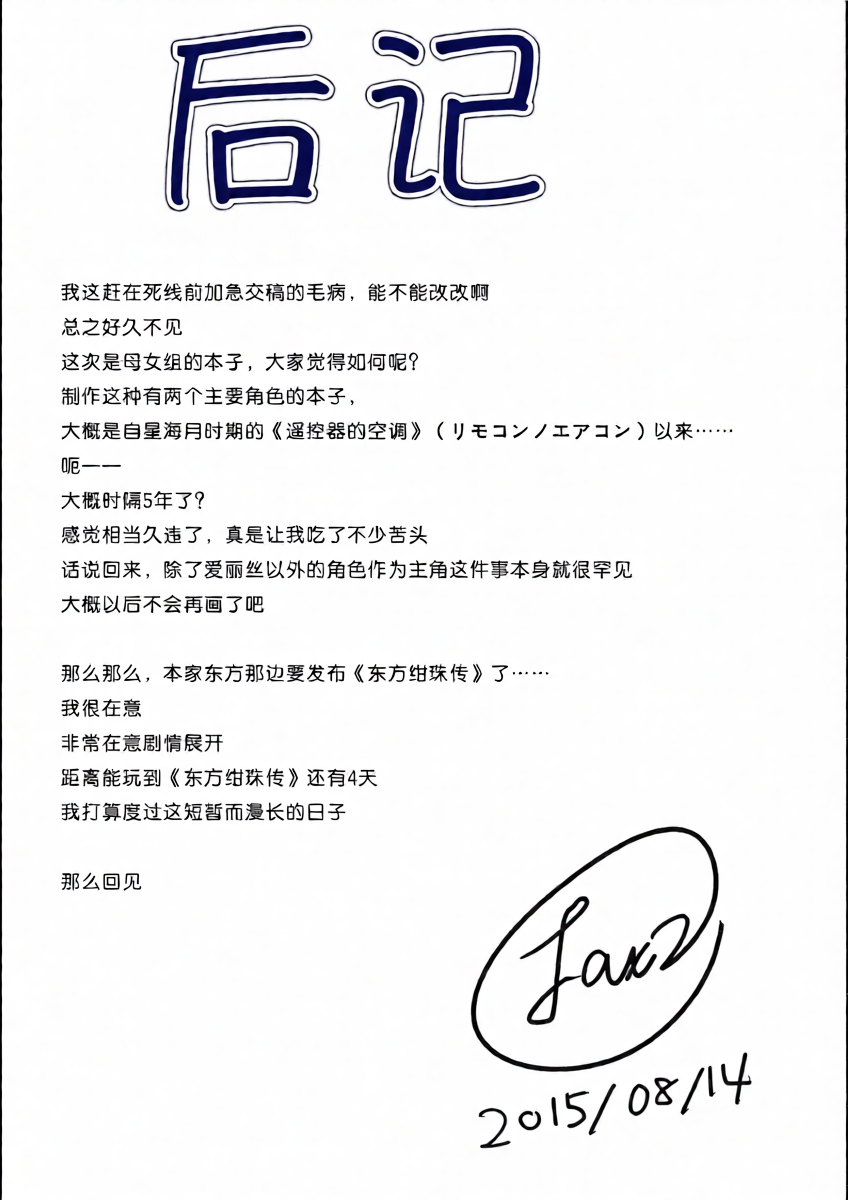 后记
我这赶在死线前加急交稿的毛病，能不能改改啊
总之好久不见
这次是母女组的本子，大家觉得如何呢？
制作这种有两个主要角色的本子，
大概是自星海月时期的《遥控器的空调》（リモコンノエアコン）以来……
呃——
大概时隔5年了？
感觉相当久违了，真是让我吃了不少苦头
话说回来，除了爱丽丝以外的角色作为主角这件事本身就很罕见
大概以后不会再画了吧
那么那么，本家东方那边要发布《东方绀珠传》了……
我很在意
非常在意剧情展开
距离能玩到《东方绀珠传》还有4天
我打算度过这短暂而漫长的日子
那么回见
2015/08/14